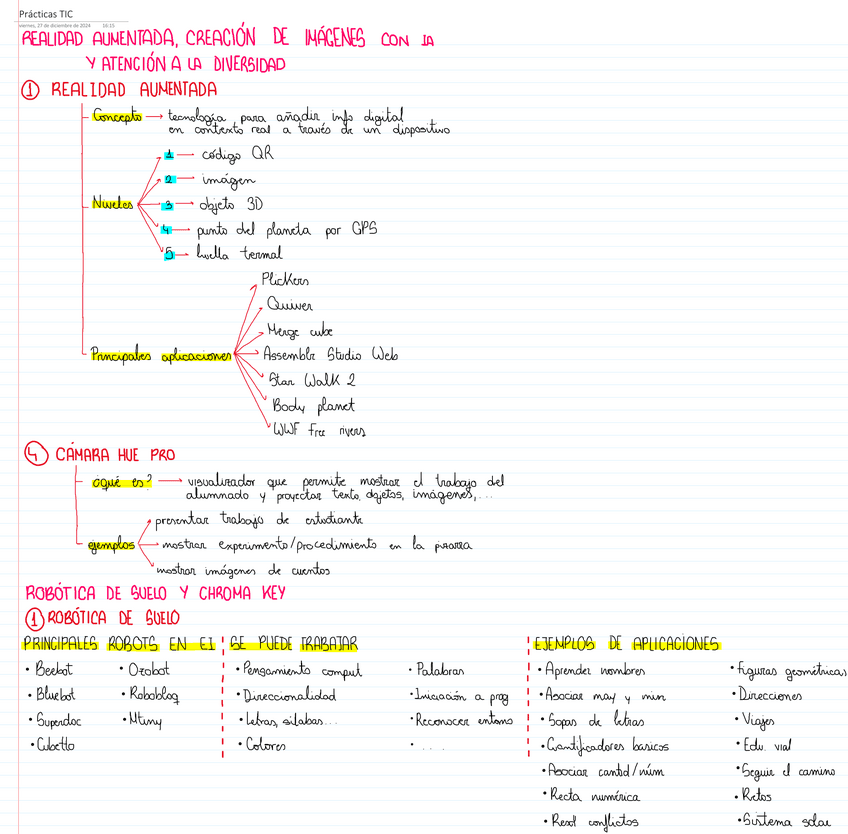 Prácticas TIC
viernes, 27 de diciembre de 2024 16:15
REALIDAD AUMENTADA, CREACIÓN DE IMÁGENES CON IA
Y ATENCIÓN A LA DIVERSIDAD
① REALIDAD AUMENTADA
Concepto → tecnología para añadir info digital
en contexto real a través de un dispositivo
Niveles
1 → código QR
2 → imágen
3 → objeto 3D
4 → punto del planeta por GPS
5 → huella termal
Principales aplicaciones
Plickers
Quiver
Merge cube
Assemblr Studio Web
Star Walk 2
Body planet
WWF Free rivers
④ CÁMARA HUE PRO
¿qué es? → visualizador que permite mostrar el trabajo del
alumnado y proyectar texto, objetos, imágenes,...
ejemplos
presentar trabajo de estudiante
mostrar experimento/procedimiento en la pizarra
mostrar imágenes de cuentos
ROBÓTICA DE SUELO Y CHROMA KEY
① ROBÓTICA DE SUELO
PRINCIPALES ROBOTS EN EI
• Beebot
• Bluebot
• Superdoc
• Cubetto
• Ozobot
• Robobloq
• Mtiny
SE PUEDE TRABAJAR
• Pensamiento comput
• Direccionalidad
• Letras, sílabas...
• Colores
• Palabras
• Iniciación a prog
• Reconocer entorno
• ....
EJEMPLOS DE APLICACIONES
• Aprender nombres
• Asociar may y min
• Sopas de letras
• Cuantificadores basicos
• Asociar cantid/núm
• Recta numérica
• Resol conflictos
• Figuras geométricas
• Direcciones
• Viajes
• Edu. vial
• Seguir el camino
• Retos
• Sistema solar